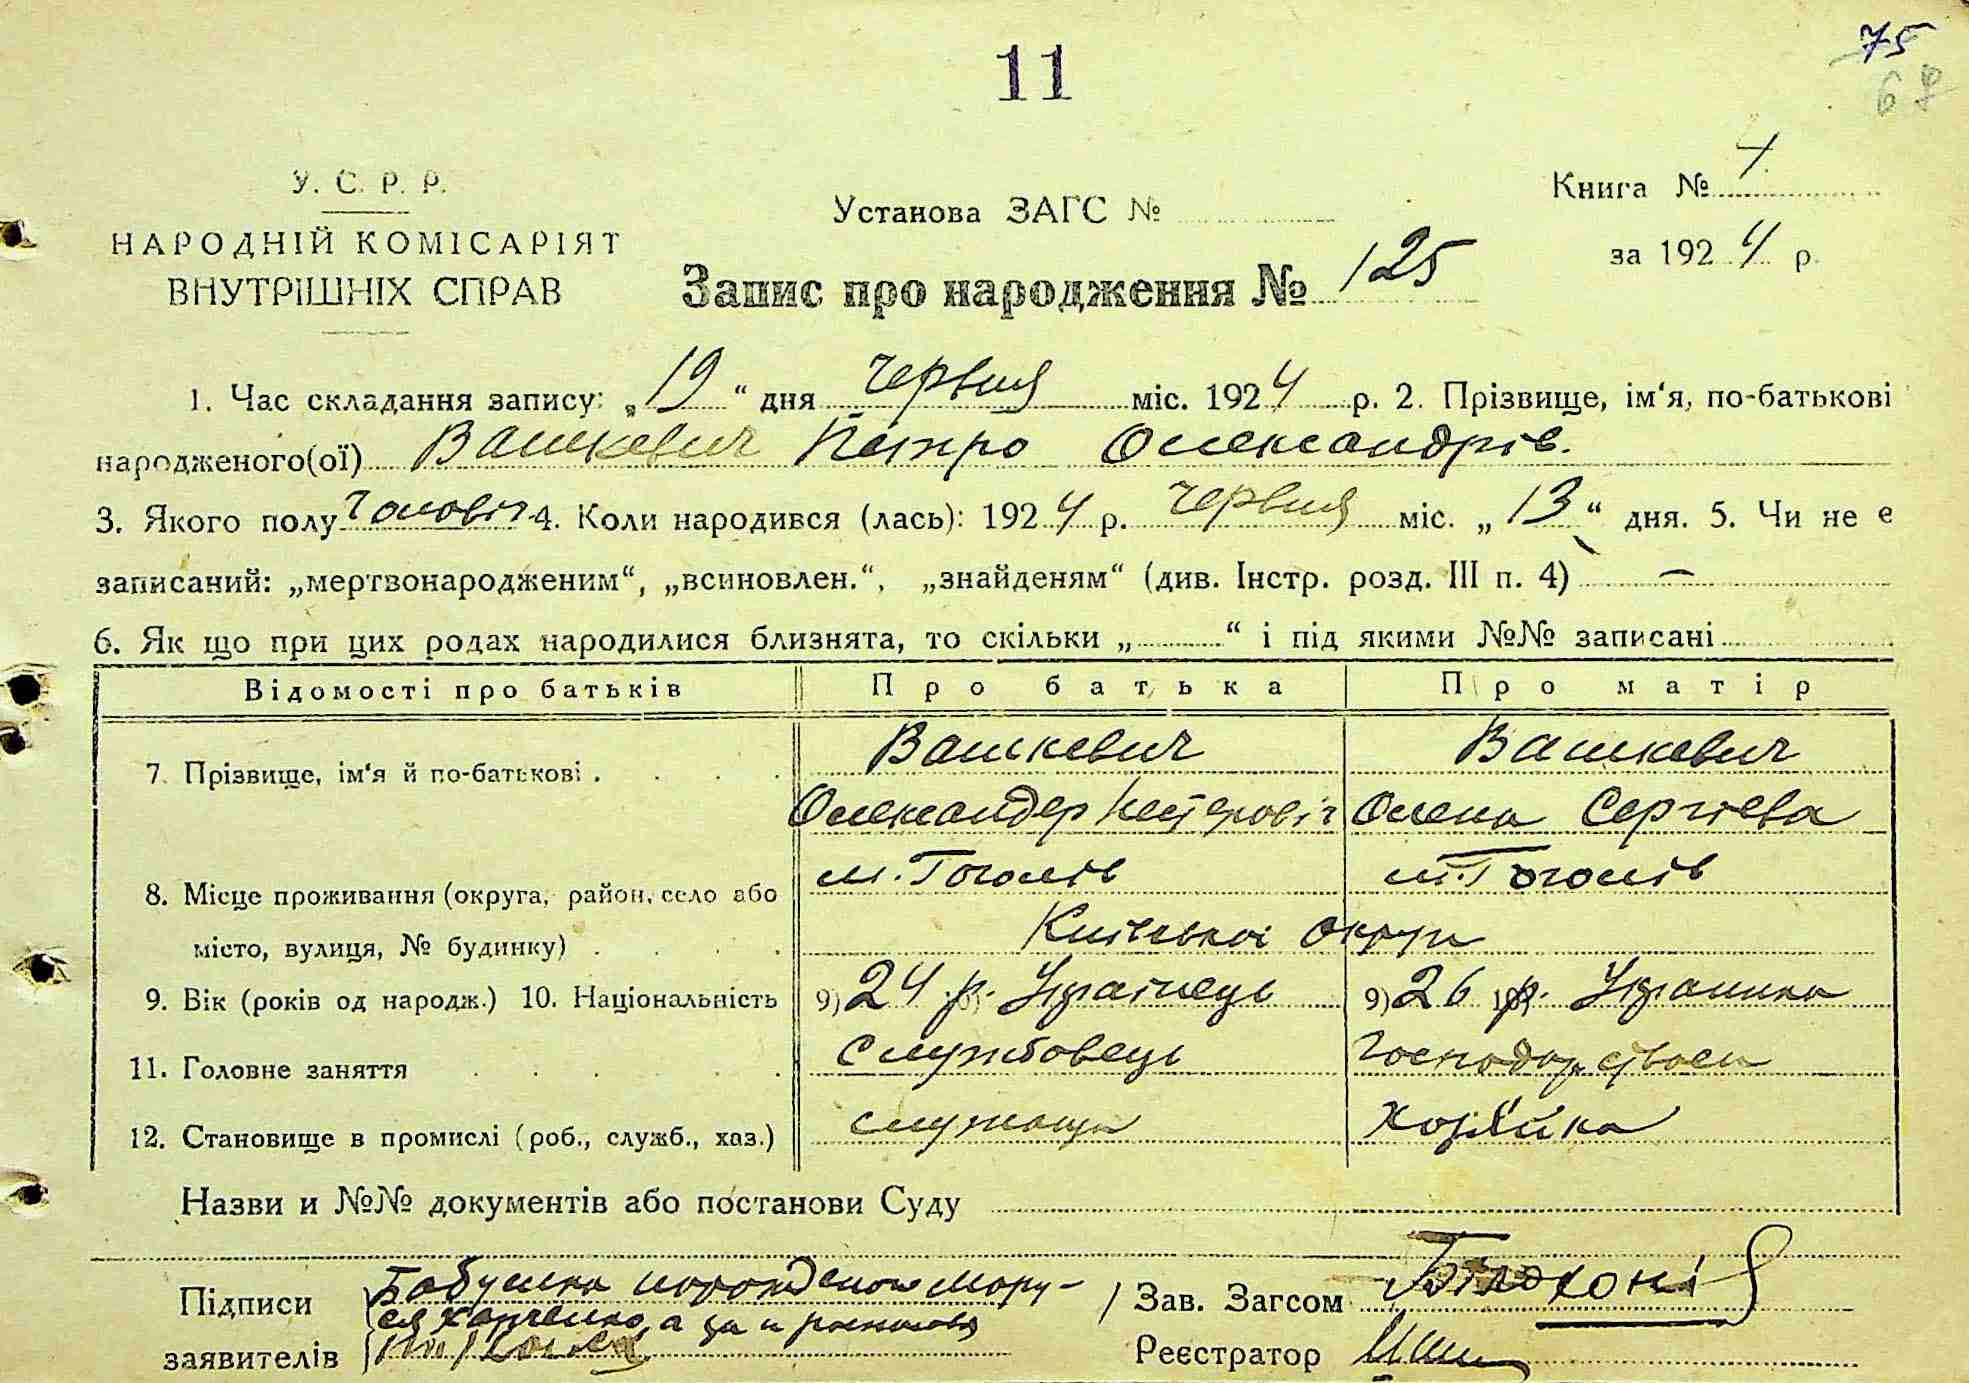 11
75
69
У. С. Р. Р.
НАРОДНІЙ КОМІСАРІЯТ
ВНУТРІШНІХ СПРАВ
Установа ЗАГС №
Запис про народження № 125
Книга № 4
за 1924 р.
1. Час складання запису: „19“ дня червня міс. 1924 р. 2. Прізвище, ім‘я, по-батькові
народженого(ої) Вашкевич Петро Олександрів.
3. Якого полу Чоловіч 4. Коли народився (лась): 1924 р. червня міс. „13“ дня. 5. Чи не є
записаний: „мертвонародженим“, „всиновлен.“, „знайденям“ (див. Інстр. розд. III п. 4) —
6. Як що при цих родах народилися близнята, то скільки „ “ і під якими №№ записані
Відомості про батьків Про батька Про матір
7. Прізвище, ім‘я й по-батькові . Вашкевич Вашкевич
Олександер Нестерович Олена Сергієва
8. Місце проживання (округа, район, село або м. Гоголів м. Гоголів
місто, вулиця, № будинку) Київської округи
9. Вік (років од народж.) 10. Національність 9) 24 р. Українець 9) 26 р. Украинка
11. Головне заняття Службовець Господарством
12. Становище в промислі (роб., служб., хаз.) служащий Хозяйка
Назви и №№ документів або постанови Суду
Підписи Бабушка Мару-
ся Харченко, а за
заявителів
Зав. Загсом
Реєстратор